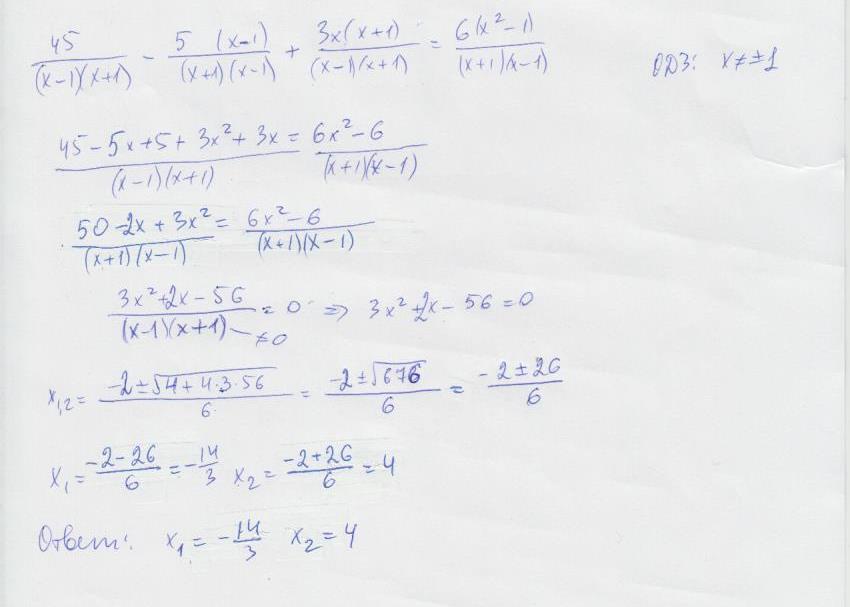 45/((x-1)(x+1)) - 5(x-1)/((x+1)(x-1)) + 3x(x+1)/((x-1)(x+1)) = 6(x²-1)/((x+1)(x-1)) ОДЗ: x≠±1
(45-5x+5+3x²+3x)/((x-1)(x+1)) = (6x²-6)/((x+1)(x-1))
(50-2x+3x²)/((x+1)(x-1)) = (6x²-6)/((x+1)(x-1))
(3x²+2x-56)/((x-1)(x+1)) = 0 ≠0 => 3x²+2x-56=0
x₁,₂ = (-2±√(4+4·3·56))/6 = (-2±√676)/6 = (-2±26)/6
x₁ = (-2-26)/6 = -14/3 x₂ = (-2+26)/6 = 4
Ответ: x₁ = -14/3 x₂ = 4